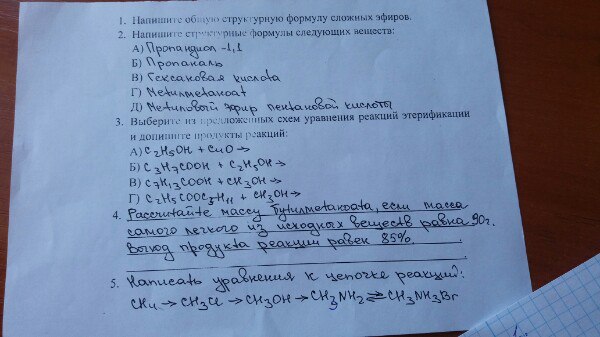 1. Напишите общую структурную формулу сложных эфиров.
2. Напишите структурные формулы следующих веществ:
А) Пропандиол -1,1
Б) Пропаналь
В) Гексановая кислота
Г) Метилметаноат
Д) Метиловый эфир пентановой кислоты
3. Выберите из предложенных схем уравнения реакций этерификации
и допишите продукты реакций:
А) C₂H₅OH + CuO →
Б) C₃H₇COOH + C₂H₅OH →
В) C₇H₁₃COOH + CH₃OH →
Г) C₂H₅COOC₅H₁₁ + CH₃OH →
4. Рассчитайте массу бутилметаноата, если масса
самого легкого из исходных веществ равна 90г.
Выход продукта реакции равен 85%.
5. Написать уравнения к цепочке реакций:
CH₄ → CH₃Cl → CH₃OH → CH₃NH₂ ⇄ CH₃NH₃Br